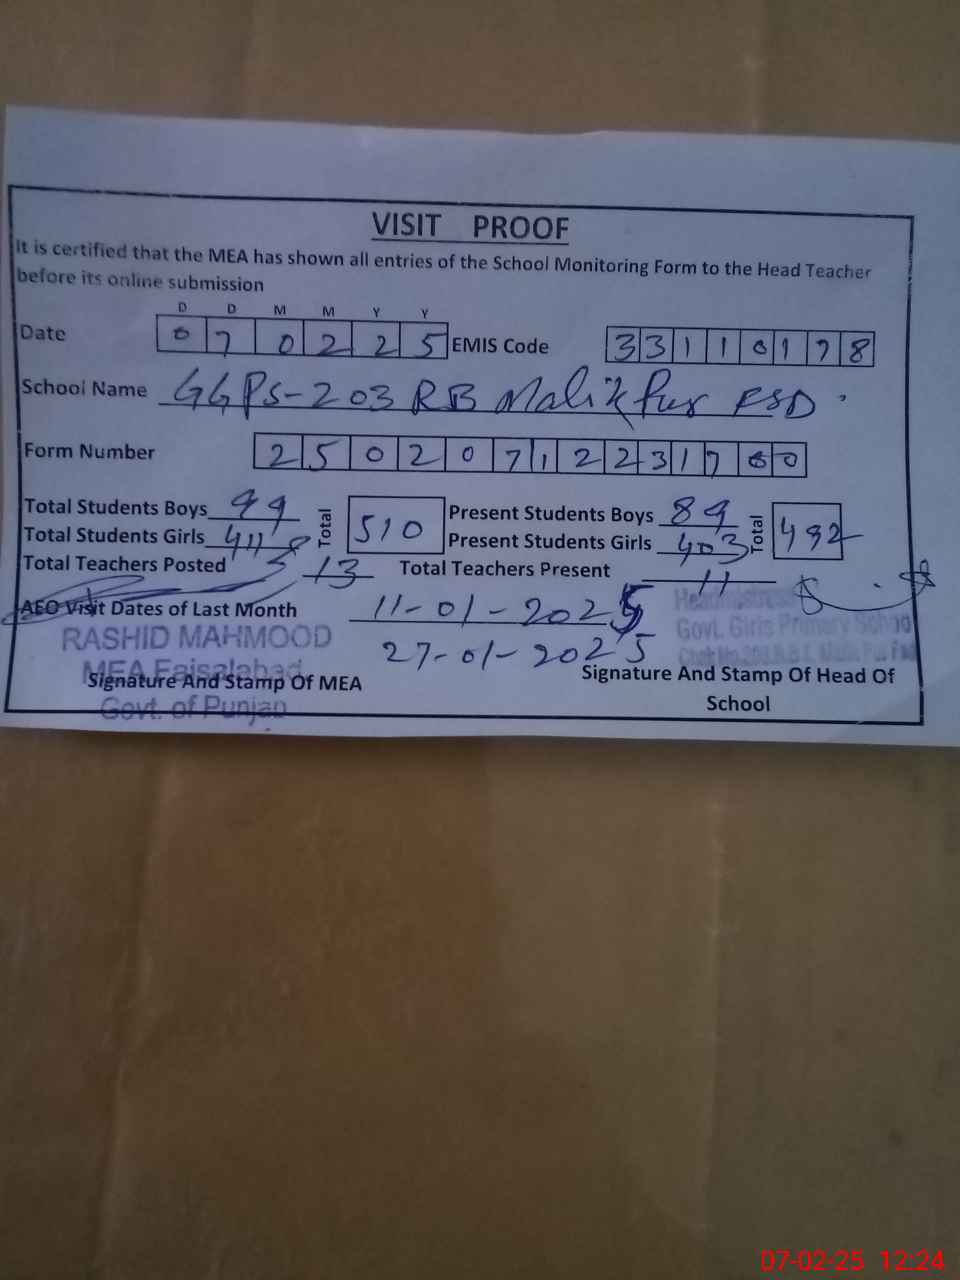 VISIT PROOF
It is certified that the MEA has shown all entries of the School Monitoring Form to the Head Teacher
before its online submission
D D M M Y Y
Date 0 7 0 2 2 5 EMIS Code 3 3 1 1 0 1 7 8
School Name GGPS-203 RB Malikpur FSD
Form Number 2 5 0 2 0 7 1 2 2 3 1 7 0 0
Total Students Boys 99 Total 510 Present Students Boys 89 Total 492
Total Students Girls 411 Present Students Girls 403
Total Teachers Posted 13 Total Teachers Present 11
AEO Visit Dates of Last Month 11-01-2025
27-01-2025
RASHID MAHMOOD
MEA Faisalabad
Govt. of Punjab
Signature And Stamp Of MEA
Headmistress
Govt. Girls Primary School
Signature And Stamp Of Head Of
School
07-02-25 12:24